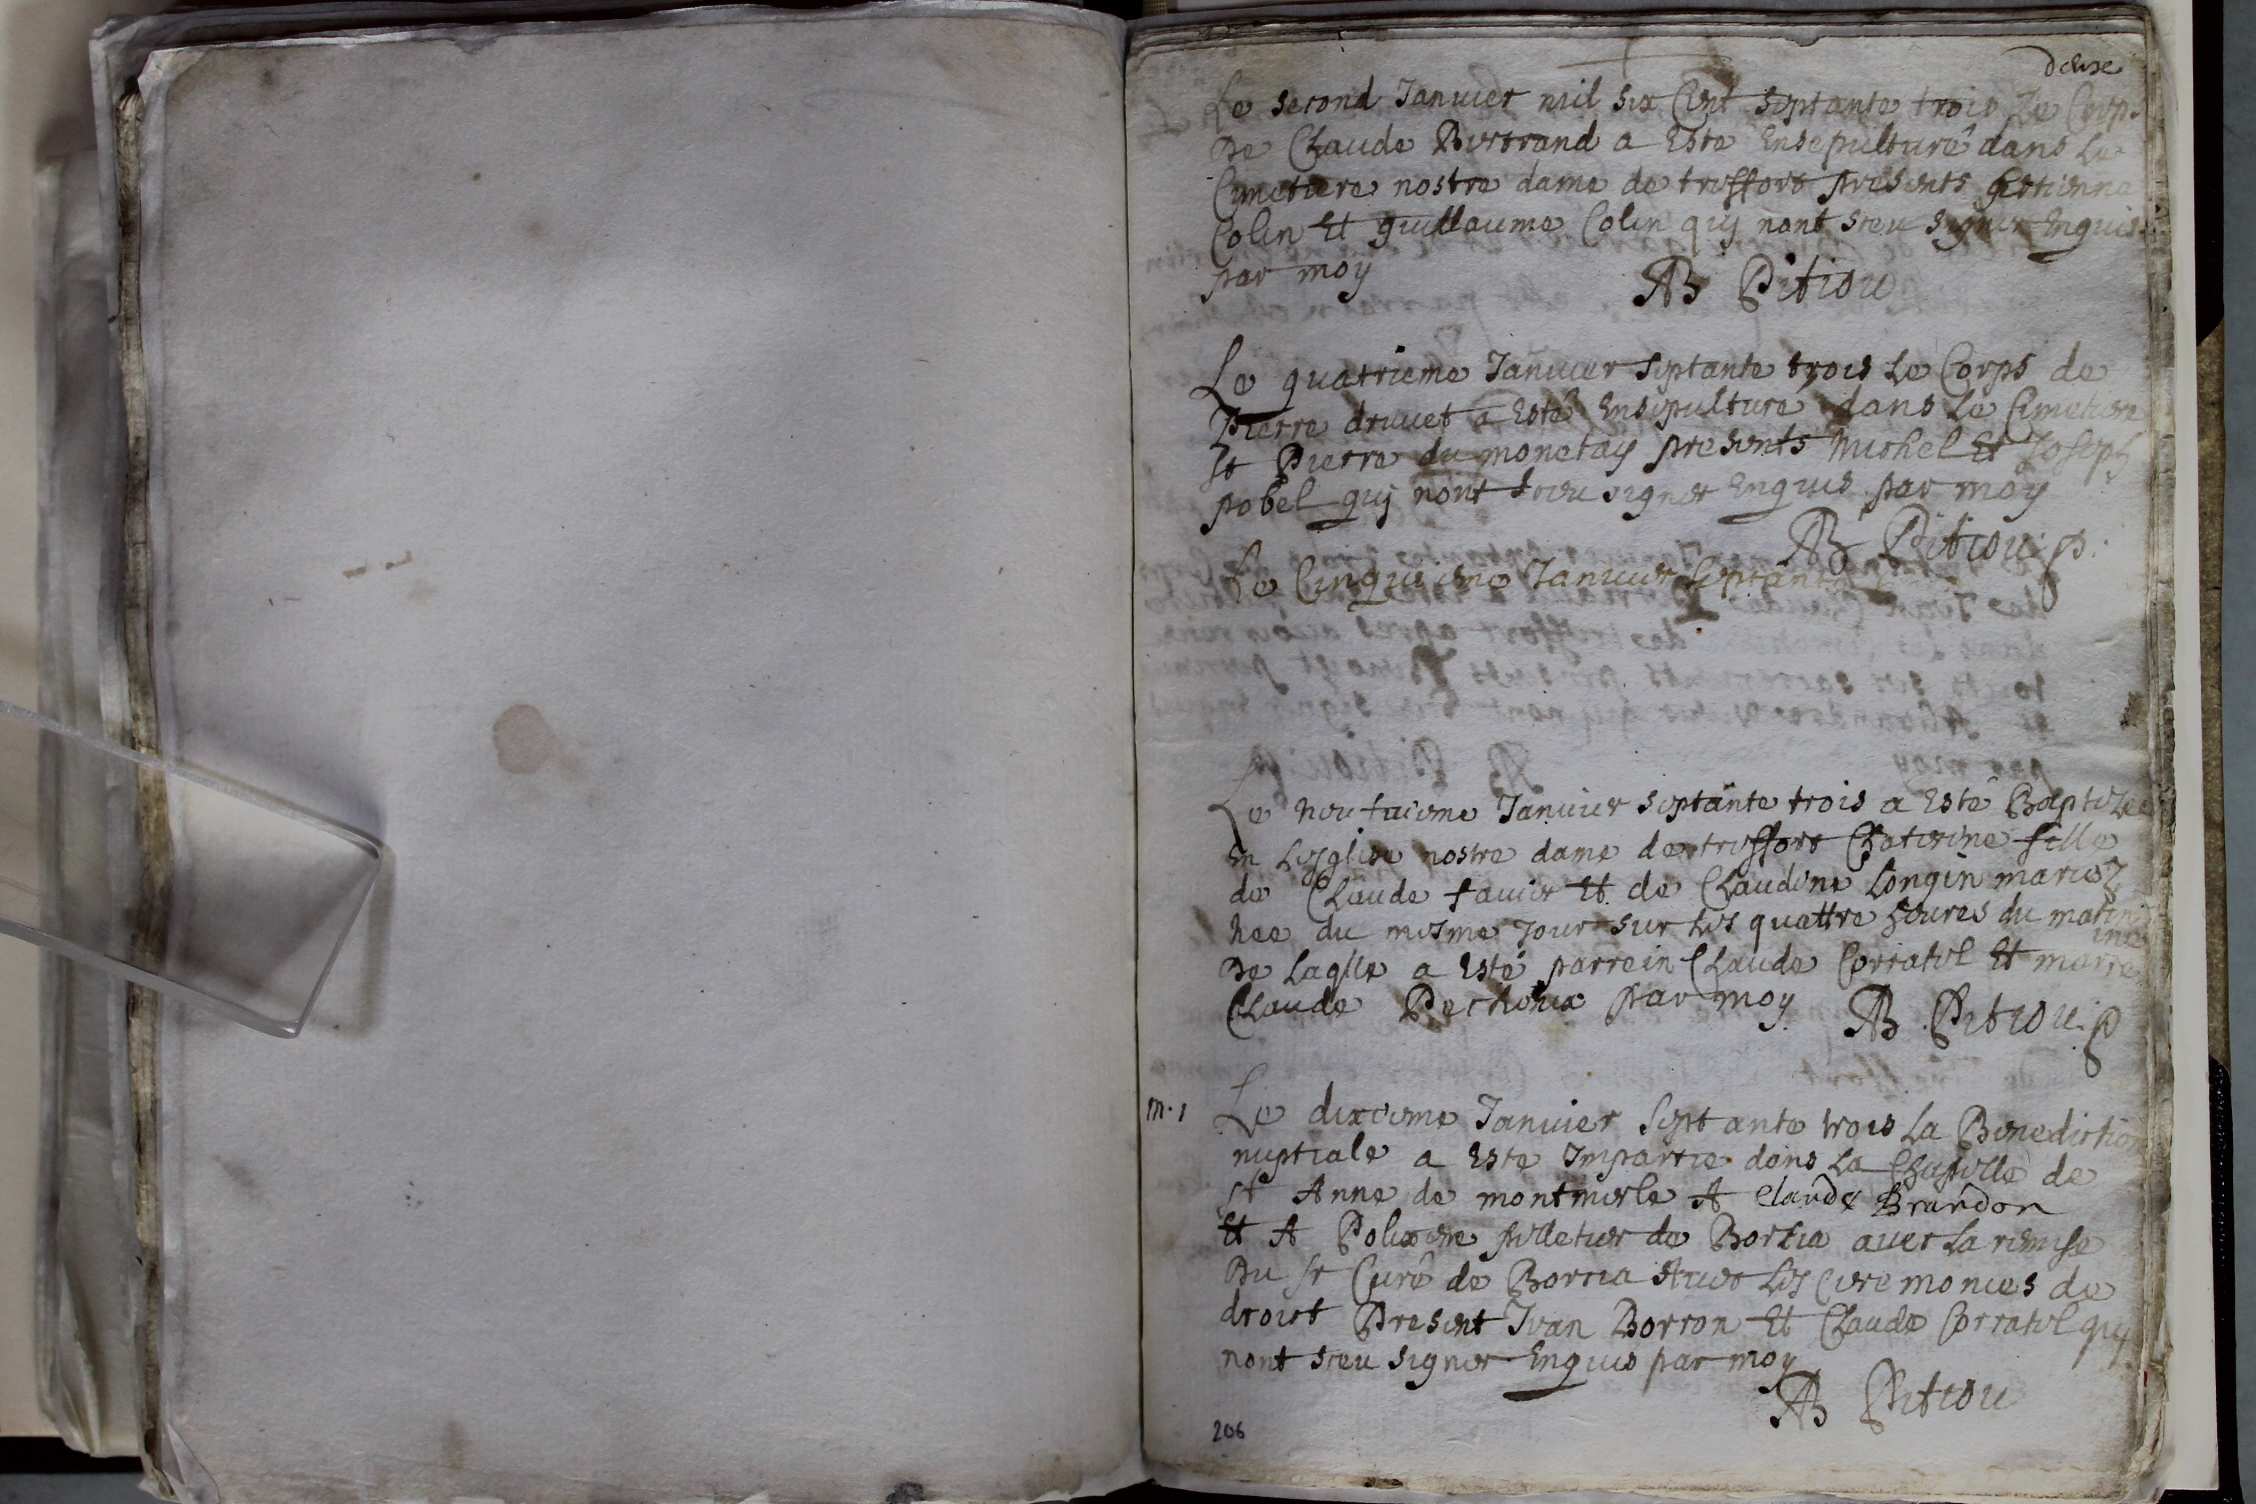 deuxe
Le second Januier mil six Cent septante trois Le Corps
De Claude Bertrand a Este Ensepulturé dans Le
Cimetiere nostre dame de treffort presents Estienne
Colin Et guillaume Colin quj nont sceu signer Enquis
par moy AB Pitiou
Le quatrieme Januier septante trois Le Corps de
Pierre driuet a Esté Ensepulture dans Le Cimetiere
St Pierre du monetay presents Michel Et Joseph
pobel quj nont sceu signer Enquis par moy
AB Pitiou p.
Le Cinquieme Januier septante
Le neufuieme Januier septante trois a Esté Baptizee
En Lesglise nostre dame de treffort Chaterine fille
de Claude fauier Et de Claudine Longin mariez
nee du mesme Jour sur Les quattre heures du matin
De Laqlle a Esté parrein Claude Corratel Et marreine
Claude Pechoux Par moy AB Pitiou. p
m. 1 Le dixieme Januier Septante trois La Benediction
nuptiale a Este Impartie dans La Chapelle de
St Anne de montmerle A Claude Brandon
Et A Polixene filletier de Borcia auec La remise
Du sr Curé de Borcia Auec Les Ceremonies de
droict Present Jean Borron Et Claude Corratel quj
nont sceu signer Enquis par moy
AB Pitiou
206